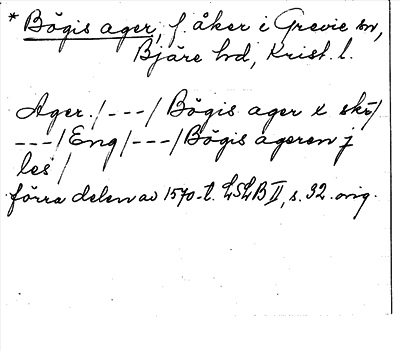 * Bögis ager, f åker i Grevie sn,
Bjäre hd, Krist. l.
Ager. /---/ Bögis ager x skr/
---/ Eng /---/ Bögis ageren j
les /
förra delen av 1570-t. LSLB II, s. 32. orig.